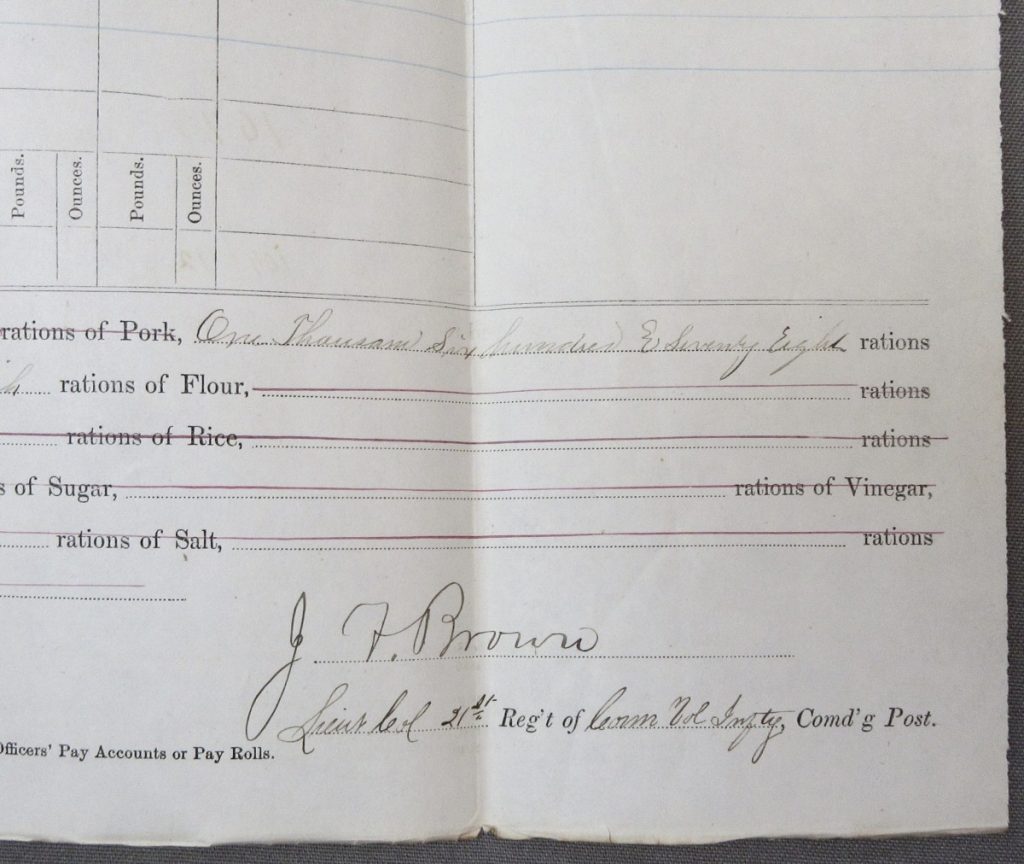 Pounds. Ounces. Pounds. Ounces.
rations of Pork, One Thousand Six hundred & Seventy Eight rations
rations of Flour, rations
rations of Rice, rations
s of Sugar, rations of Vinegar,
rations of Salt, rations
J. F. Brown
Lieut Col 21st Reg't of Conn Vol Infty, Comd'g Post.
Officers' Pay Accounts or Pay Rolls.